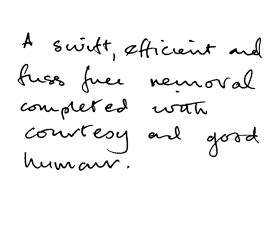 A swift, efficient and
fuss free removal
completed with
courtesy and good
humour.